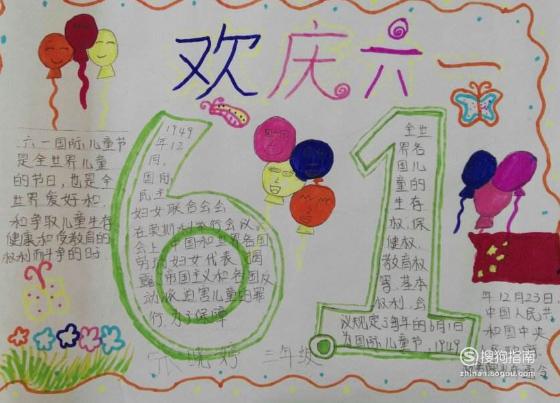 欢庆六一
六一国际儿童节
是全世界儿童
的节日,也是全
世界爱好和
和争取儿童生存
健康和受教育的
权利而斗争的日
1949
年12
月,国
际
民主
妇女联合会
在莫斯科
会上,中国和
势
帝国主义和各国反
动派
迫害儿童的罪
行,为了保障
全世
界各
国儿
童的
生存
权,保
健权,
教育权
等基本
权利,会
议规定每年的6月1日
为国际儿童节,1949
年12月23日,
中国人民
和国中央
三年级
搜狗指南
zhinan.sogou.com